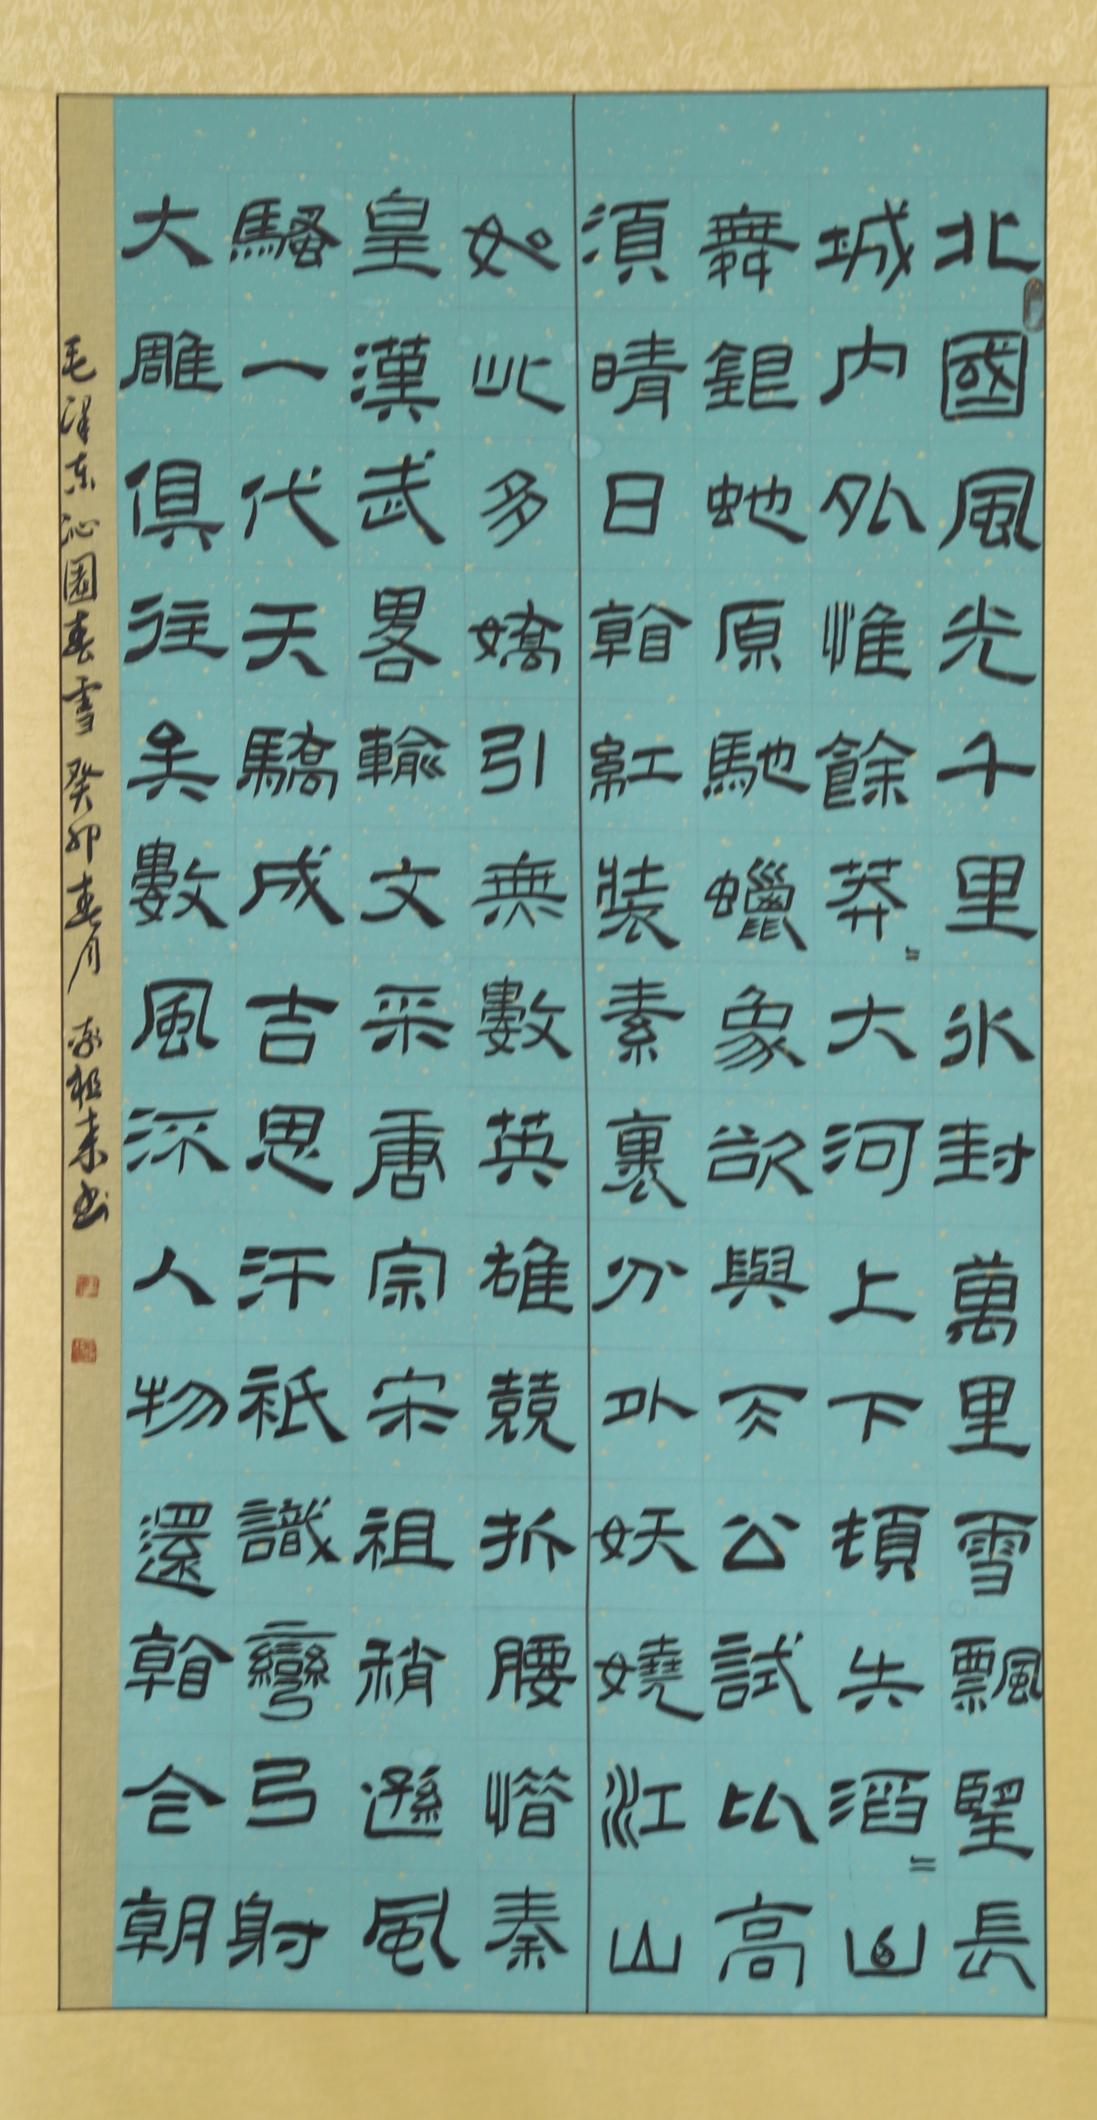 北國風光千里冰封萬里雪飄望長
城内外惟餘莽〻大河上下頓失滔〻山
舞銀蛇原馳蠟象欲與天公試比高
須晴日看紅裝素裹分外妖嬈江山
如此多嬌引無數英雄競折腰惜秦
皇漢武畧輸文采唐宗宋祖稍遜風
騷一代天驕成吉思汗祇識彎弓射
大雕俱往矣數風流人物還看今朝
毛澤东沁園春雪 癸卯春月 祖来书